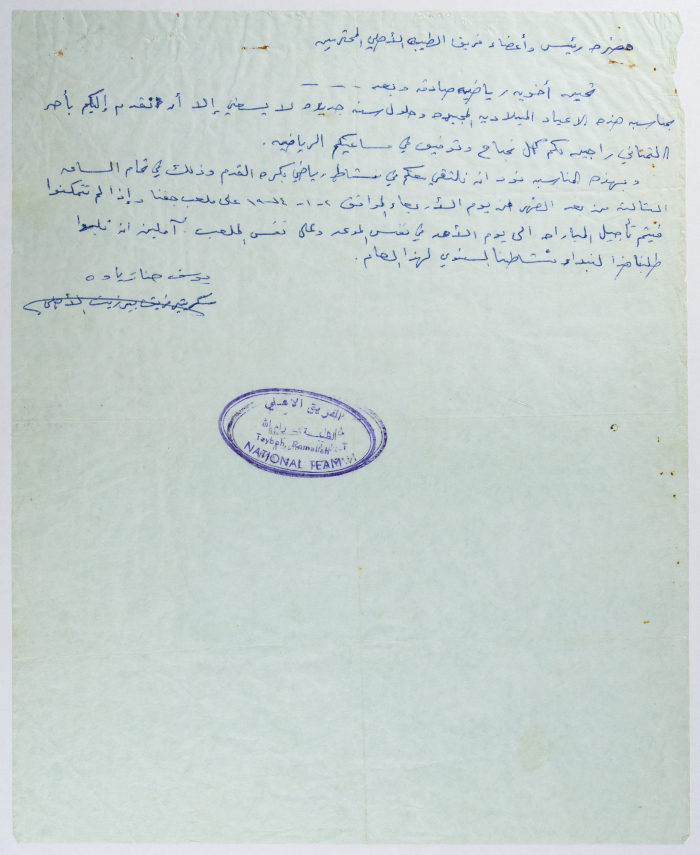 حضرة رئيس وأعضاء فريق الطيبة الأهلي المحترمين
تحية أخوية رياضية صادقة وبعد - - -
بمناسبة هذه الاعياد الميلادية المجيدة وحلول سنة جديدة لا يسعني إلا أن أتقدم إليكم بأحر
التهاني راجيه لكم كل نجاح وتوفيق في مساعيكم الرياضيه.
وبهذه المناسبه نود ان نلتقي معكم في نشاط رياضي بكره القدم وذلك في تمام الساعه
الثالثة من بعد الظهر من يوم الأربعاء الموافق ٢-١- على ملعب جفنا وإذا لم تتمكنوا
فيتم تأجيل المباراه الى يوم الأحد في نفس الموعد وعلى نفس الملعب. آملين ان تلبوا
طلبنا هذا لنبداء نشاطنا السنوي لهذا العام.
يوسف حنا زياده
سكرتير فريق بيرزيت الأهلي
الفريق الاهلي
الطيبة - رام الله
Taybeh, Ramallah
NATIONAL TEAM